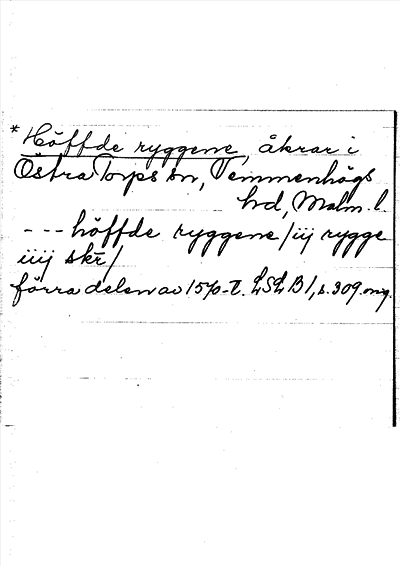 * Höffde ryggene, åkrar i
Östra Torps sn, Vemmenhögs
hd, Malm. l.
- - - höffde ryggene / iij rygge
iiij skr̅ /
förra delen av 1570-t. LSL B1, s. 309. mg.